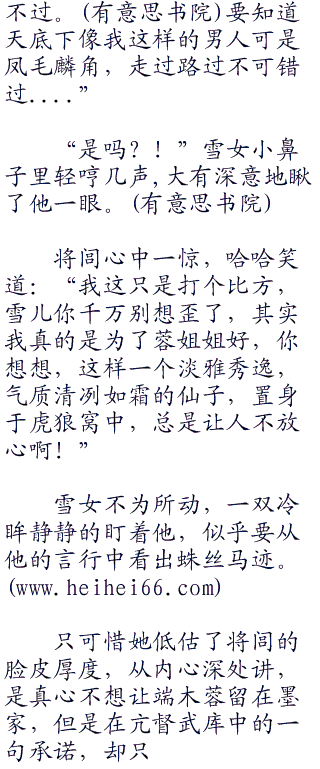 不过。(有意思书院)要知道
天底下像我这样的男人可是
凤毛麟角，走过路过不可错
过....”
“是吗？！”雪女小鼻
子里轻哼几声,大有深意地瞅
了他一眼。(有意思书院)
将闾心中一惊，哈哈笑
道：“我这只是打个比方，
雪儿你千万别想歪了，其实
我真的是为了蓉姐姐好，你
想想，这样一个淡雅秀逸，
气质清冽如霜的仙子，置身
于虎狼窝中，总是让人不放
心啊！”
雪女不为所动，一双冷
眸静静的盯着他，似乎要从
他的言行中看出蛛丝马迹。
(www.heihei66.com)
只可惜她低估了将闾的
脸皮厚度，从内心深处讲，
是真心不想让端木蓉留在墨
家，但是在亢督武库中的一
句承诺，却只